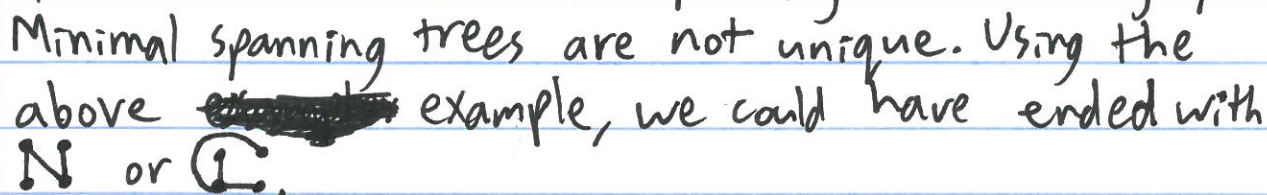 Minimal spanning trees are not unique. Using the
above example, we could have ended with
or .